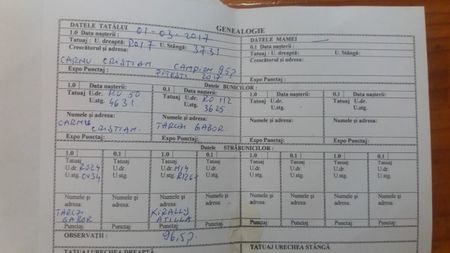 GENEALOGIE
DATELE TATĂLUI 01-03-2017
DATELE MAMEI
1.0 Data naşterii:
0.1 Data naşterii:
Tatuaj: U. dreaptă: RO17 U. Stângă: 3731
Tatuaj: U. dreaptă: U. Stângă:
Crescătorul şi adresa:
Crescătorul şi adresa:
CARMU CRISTIAN CAMPION 95 P
Expo Punctaj: PITEŞTI 2017
Expo Punctaj:
Datele BUNICILOR:
1.0 0.1 1.0 0.1
Data naşterii: Data naşterii: Data naşterii: Data naşterii:
Tatuaj U.dr. RO 50 Tatuaj U.dr. RO 112 Tatuaj U.dr. Tatuaj U.dr.
U.stg. 4631 U.stg. 3625 U.stg. U.stg.
Numele şi adresa: Numele şi adresa: Numele şi adresa: Numele şi adresa:
CARMU CRISTIAN. TARCZI GABOR
Expo Punctaj: Expo Punctaj: Expo Punctaj: Expo Punctaj:
Datele STRĂBUNICILOR:
1.0 0.1 1.0 0.1 1.0 0.1 1.0 0.1
Tatuaj Tatuaj Tatuaj Tatuaj Tatuaj Tatuaj Tatuaj Tatuaj
U.dr. U.dr. U.dr. U.dr. U.dr. U.dr. U.dr. U.dr.
U.stg. U.stg. U.stg. U.stg. U.stg. U.stg. U.stg. U.stg.
Numele şi adresa: Numele şi adresa: Numele şi adresa: Numele şi adresa: Numele şi adresa: Numele şi adresa: Numele şi adresa: Numele şi adresa:
GABOR ATILLA
Punctaj: Punctaj: Punctaj: Punctaj: Punctaj: Punctaj: Punctaj: Punctaj:
OBSERVAŢII 96,5 P
TATUAJ URECHEA DREAPTĂ
TATUAJ URECHEA STÂNGĂ